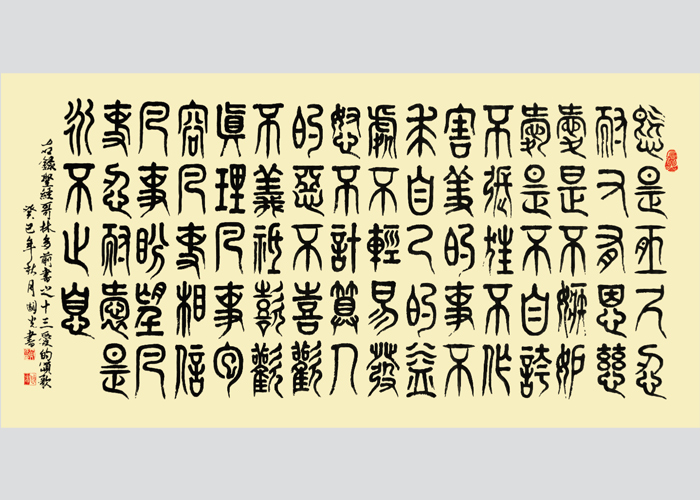 愛是恒久忍
耐又有恩慈
愛是不嫉妒
愛是不自誇
不張狂不作
害羞的事不
求自己的益
處不輕易發
怒不計算人
的惡不喜歡
不義祗歡
真理凡事包
容凡事相信
凡事盼望凡
事忍耐愛是
永不止息
右錄聖經哥林多前書之十三愛的頌歌
癸巳年秋月國書